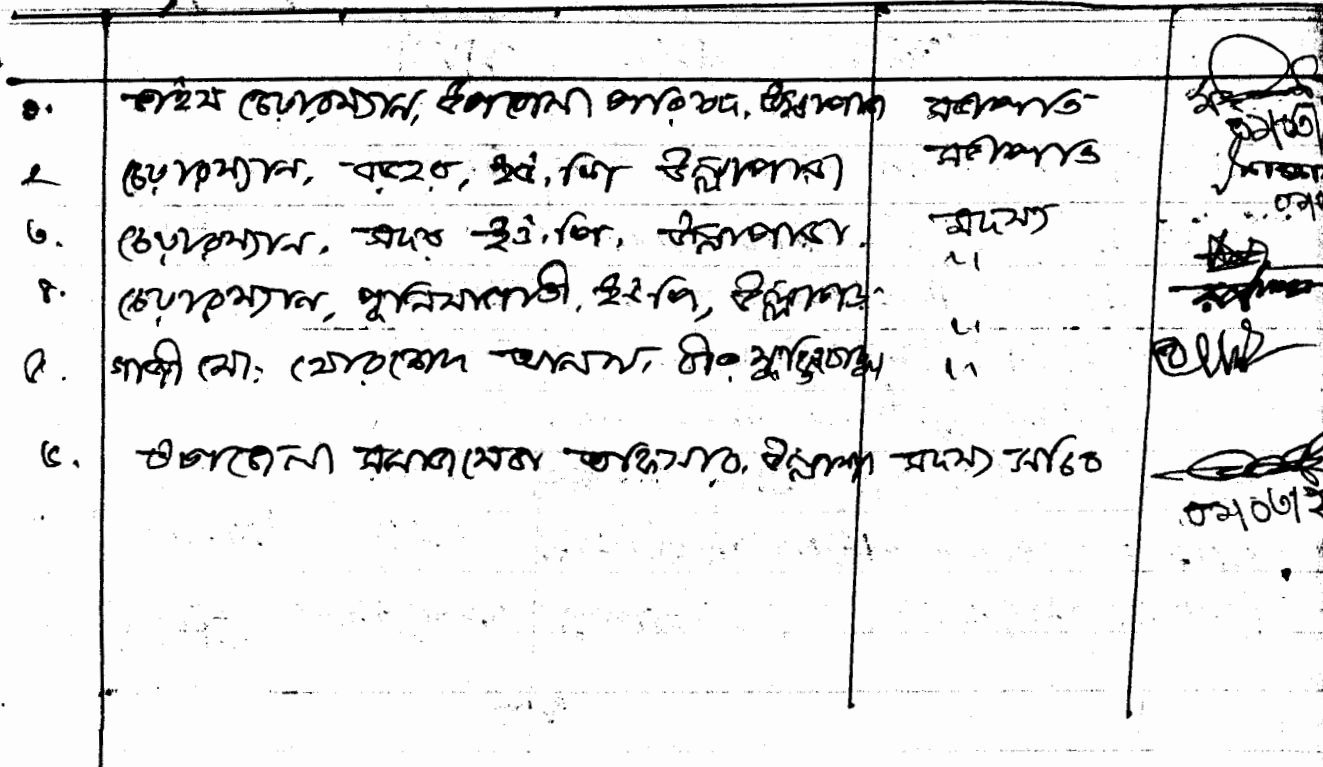 ১. ভাইস চেয়ারম্যান, উপজেলা পরিষদ, উল্লাপাড়া সভাপতি
২ চেয়ারম্যান, বড়হর, ইউ, পি উল্লাপাড়া সভাপতি
৩. চেয়ারম্যান, সদর ইউ.পি. উল্লাপাড়া. সদস্য
৪. চেয়ারম্যান, পূর্ণিমাগাতী, ইউ-পি, উল্লাপাড়া "
৫. গাজী মো: খোরশেদ আলম, বীর মুক্তিযোদ্ধা "
৬. উপজেলা সমাজসেবা অফিসার, উল্লাপাড়া সদস্য সচিব